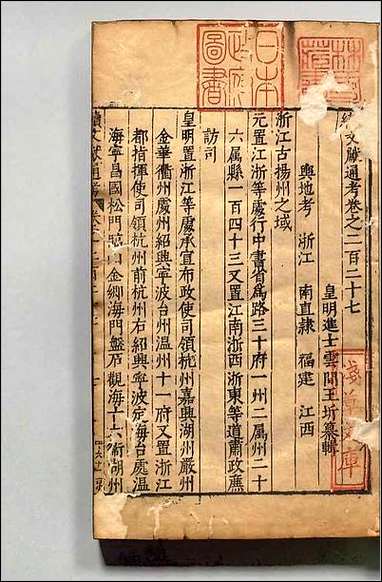 續文獻通考卷之二百二十七
皇明進士雲間王圻纂輯
輿地考 浙江 南直隸 福建 江西
浙江古揚州之域
元置江浙等處行中書省爲路三十府一州二屬州二十
六屬縣一百四十三又置江南浙西浙東等道肅政廉
訪司
皇明置浙江等處承宣布政使司領杭州嘉興湖州嚴州
金華衢州處州紹興寧波台州溫州十一府又置浙江
都指揮使司領杭州前杭州右紹興寧波定海台處溫
海寧昌國松門金鄉海門盤石觀海十六衛湖州
續文獻通考
日本政府圖書
淺草文庫